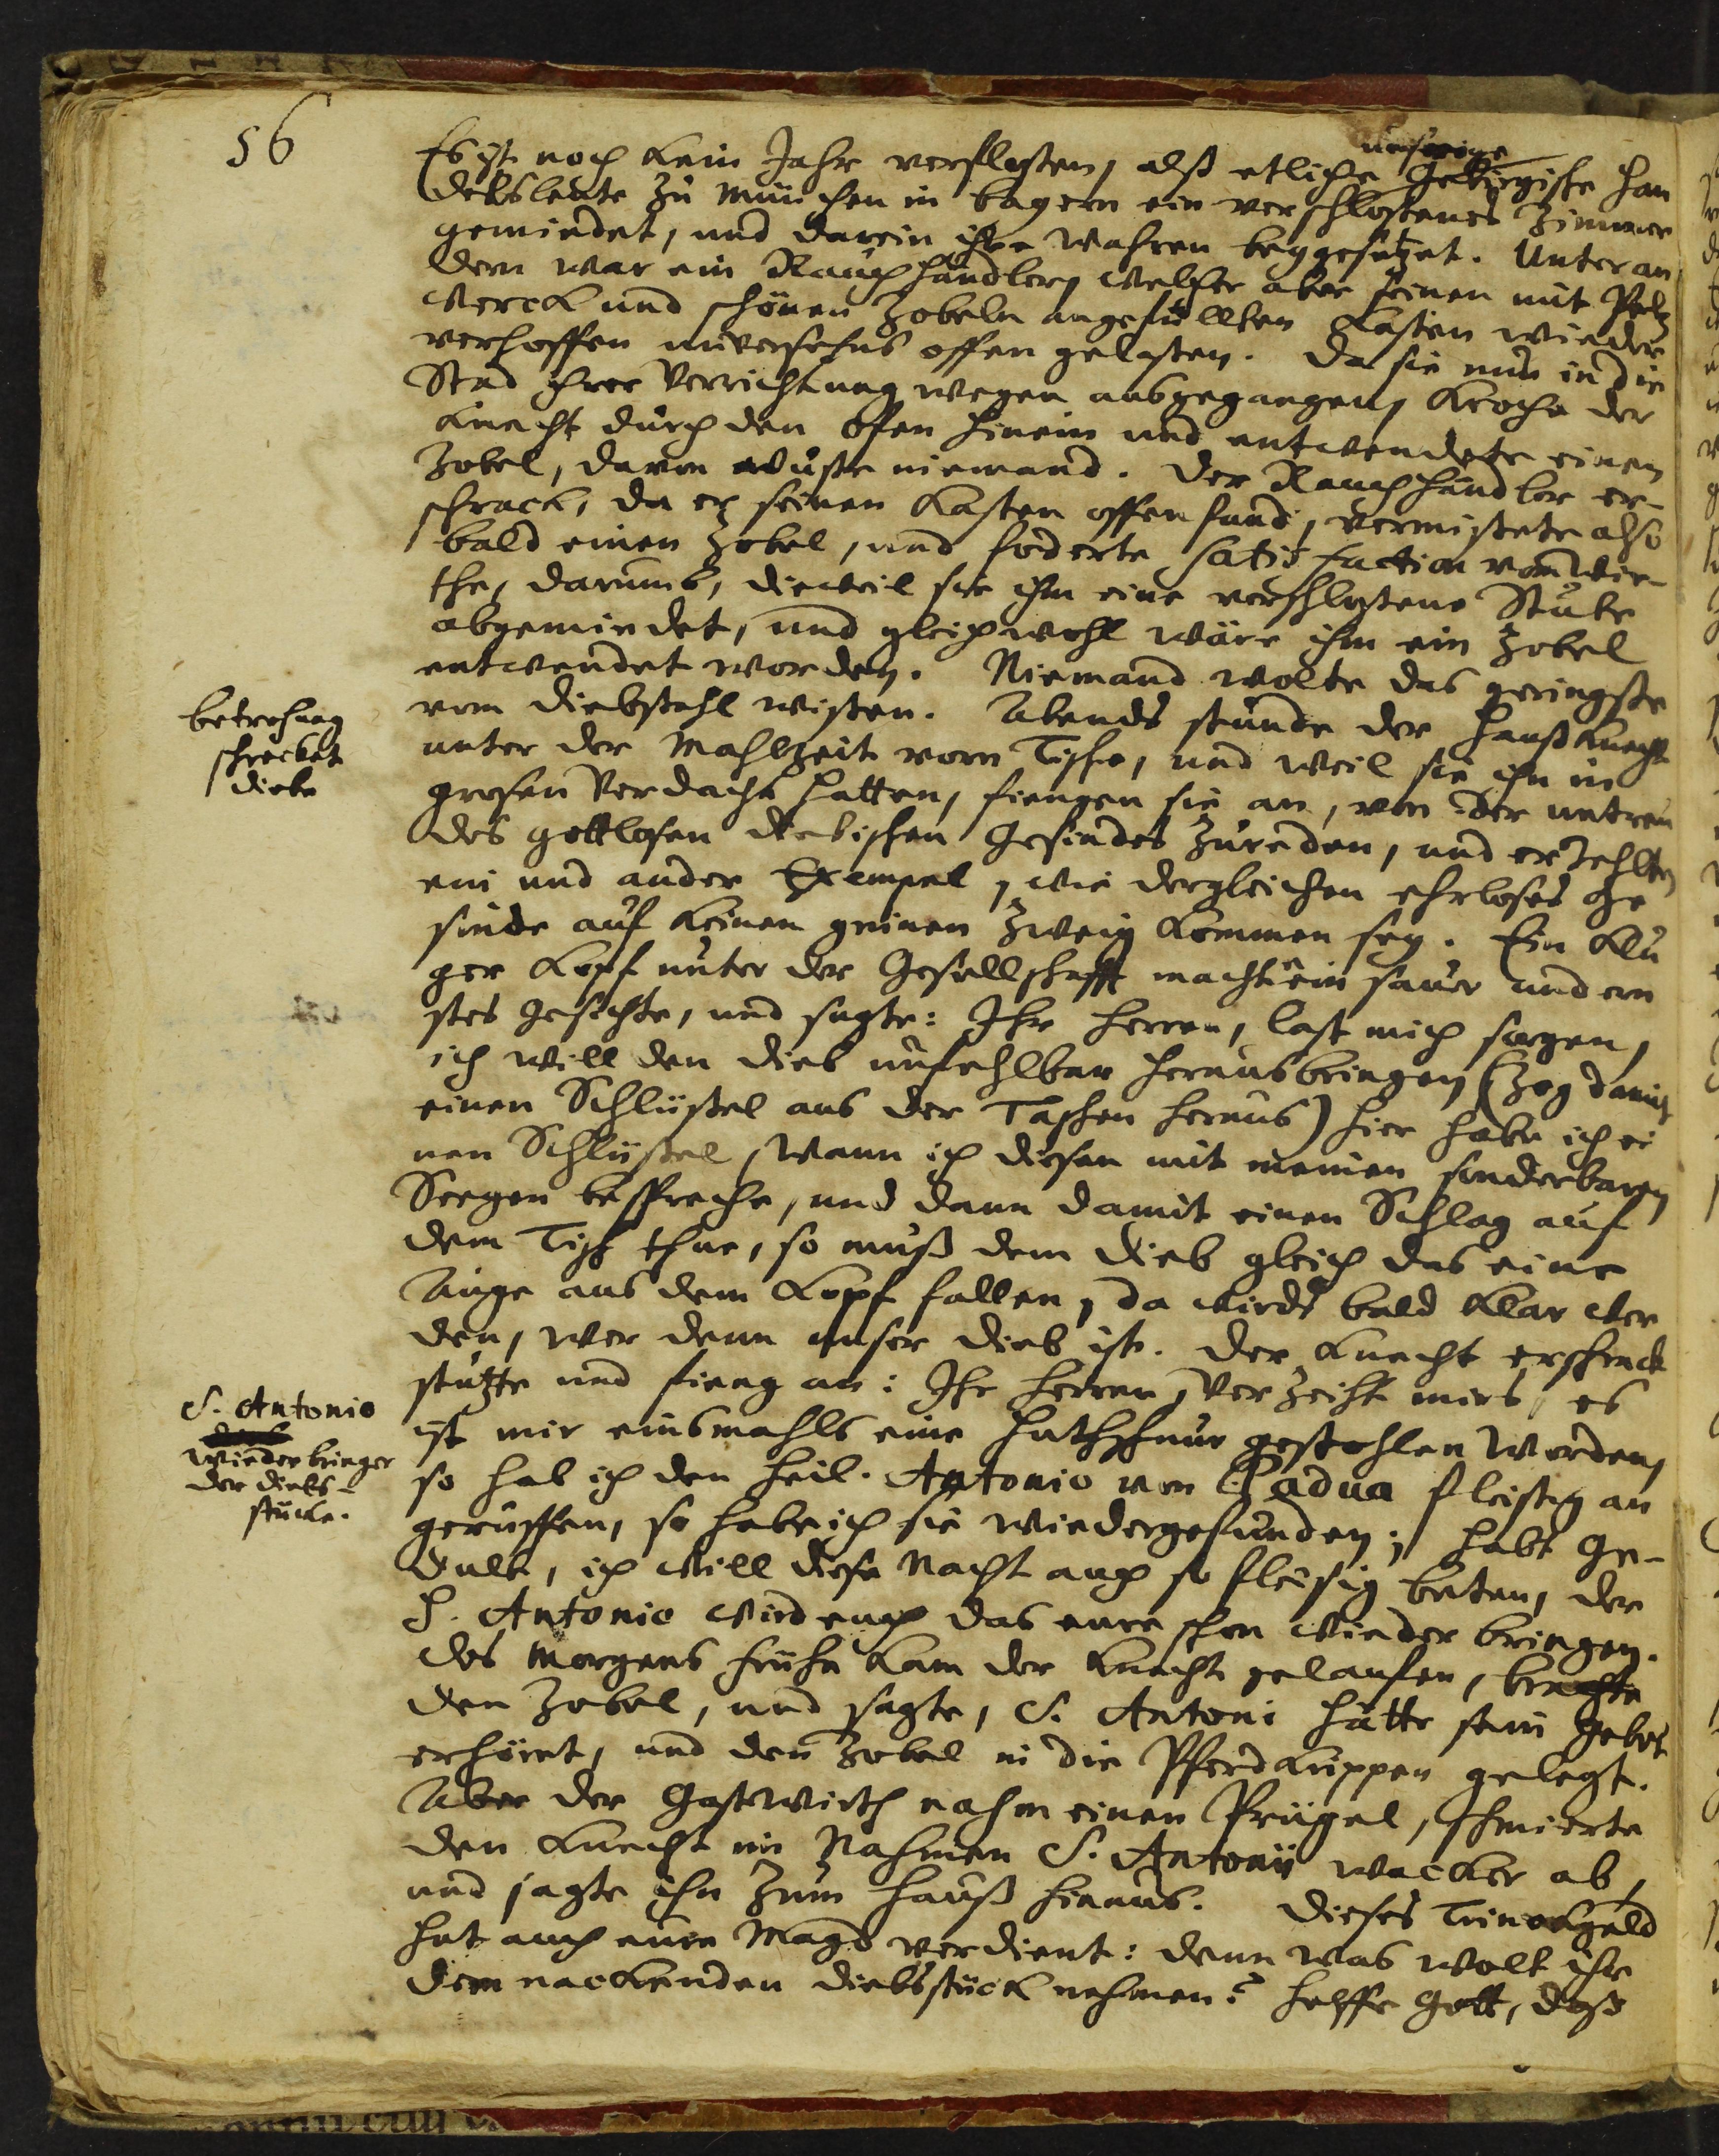 56
unserige
Es ist noch kein Jahr verflossen, alß etliche Gebirgische Han
delsleute zu München in Bayern ein verschlossenes Zimmer
gemiedet, und darein ihre Wahren beygesetzet. Unter an
dern war ein Rauchhändler, welcher aber seinen mit Peltz
werck und schönen Zobeln angefüllten Kasten wieder
verhoffen unversehns offen gelassen. Da sie nun in die
Stad ihrer Verrichtung wegen ausgegangen, kroche der
Knecht durch den Ofen hinein und entwendete einen
Zobel, davon wuste niemand. Der Rauchhändler er-
schrack, da er seinen Kasten offen fand, vermissete also
bald einen Zobel, und foderte satisfaction vom Wir-
the, darumb, dieweil sie ihm eine verschlossene Stube
abgemiedet, und gleichwohl wäre ihm ein Zobel
entwendet worden. Niemand wolte das geringste
vom Diebstahl wissen. Abends stunde der Haußknecht
unter der Mahlzeit vorm Tische, und weil sie ihn in
grosen Verdacht hatten, fiengen sie an, von der untreu
des gottlosen diebischen Gesindes zureden, und erzehlten
ein und ander Exempel, wie dergleichen ehrloses Ge
sinde auf keinen grünen Zweig kommen sey. Ein klu
ger Kopf unter der Gesellschafft machte ein saur und ern
stes Gesichte, und sagte: Ihr Herren, last mich sorgen,
ich will den Dieb unfehlbar herausbringen (zog damit
einen Schlüssel aus der Taschen heraus) hier habe ich ei
nen Schlüssel, wann ich diesen mit meinen sonderbaren
Seegen bespreche, und dann damit einen Schlag auf
dem Tisch thue, so muß dem Dieb gleich das eine
Auge aus dem Kopf fallen, da wirds bald klar wer
den, wer denn unser Dieb ist. Der Knecht erschrack
stutzte und fieng an: Ihr Herren, verzeiht mirs, es
ist mir einsmahls eine Huthschnur gestohlen worden,
so hab ich den Heil. Antonio von Padua fleissig an
geruffen, so habe ich sie wiedergefunden; habt Ge-
dult, ich will diese Nacht auch so fleissig beten, der
H. Antonio wird euch das eure schon wieder bringen.
Des Morgens frühe kam der Knecht gelaufen, brachte
den Zobel, und sagte, S. Antoni hätte sein Gebet
erhöret, und den Zobel in die Pferdkrippen gelegt.
Aber der Gastwirth nahm einen Prügel, schmierte
den Knecht im Nahmen S. Antonii wacker ab,
und jagte ihn zum Hauß hinaus. Dieses Trinckgeld
hat auch eure Magd verdient: denn was wolt ihr
dem nackenden Diebsstück nehmen? Helffe Gott, daß
betrohung
schrecket
Diebe
S. Antonio
wiederbringer
der Diebs-
stücke.